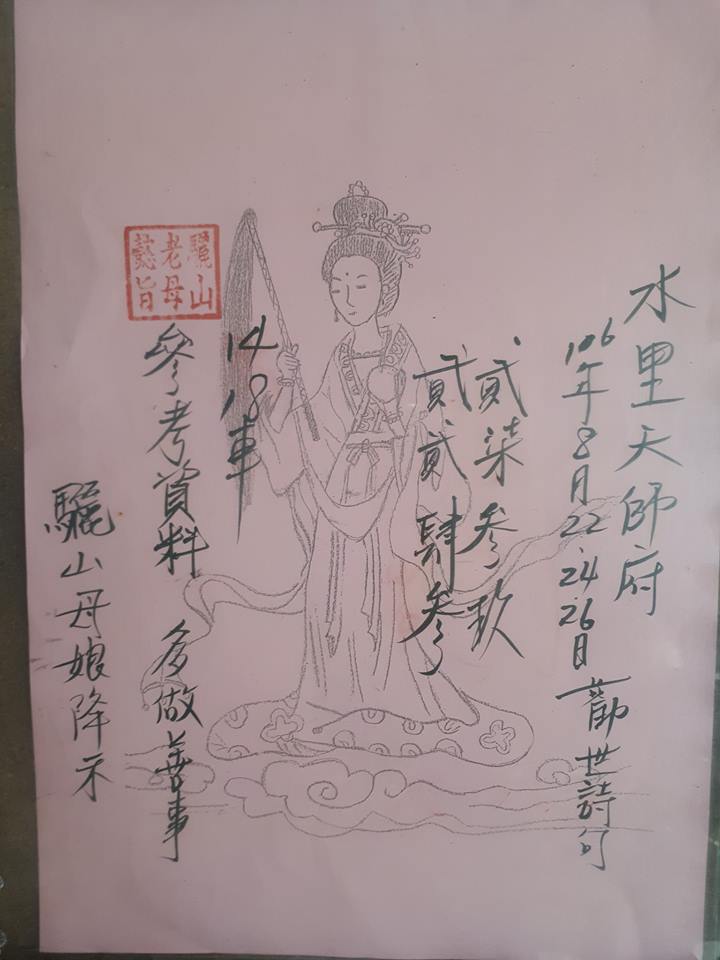 水里天師府
106年8月22.24.26日勸世詩句
貳柒參玖
貳貳肆參
14 18車
參考資料 多做善事
驪山母娘降示
驪山
老母
懿旨